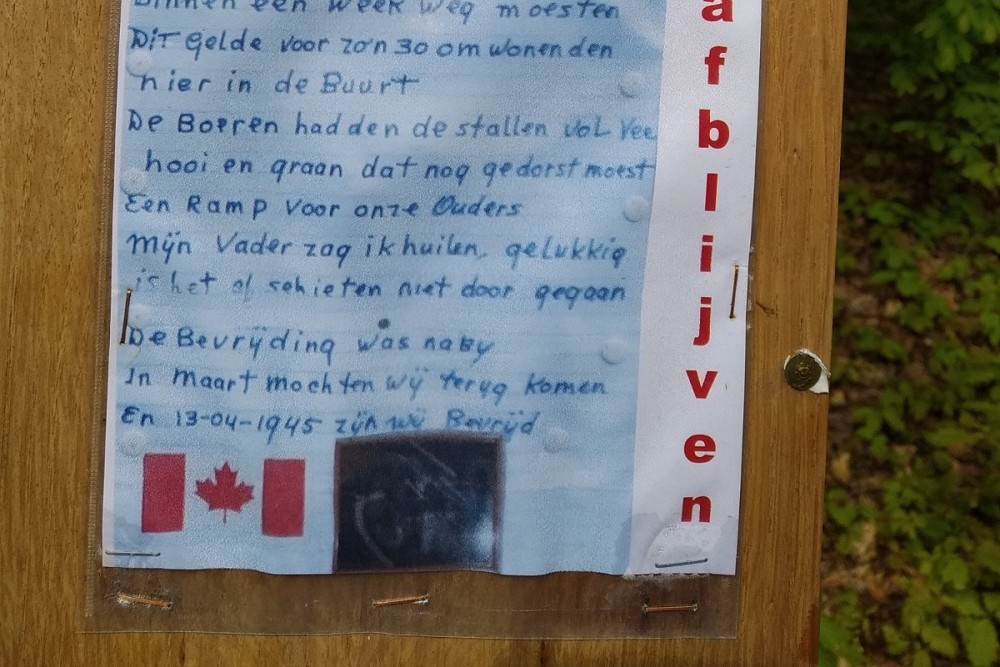 Binnen een week weg moesten
Dit Gelde voor zo'n 30 omwonenden
hier in de Buurt
De Boeren hadden de stallen vol vee
hooi en graan dat nog gedorst moest
Een Ramp voor onze Ouders
Mijn Vader zag ik huilen, gelukkig
is het schieten niet door gegaan
De Bevrijding was naby
In Maart mochten wij terug komen
En 13-04-1945 zijn wij Bevrijd
afblijven